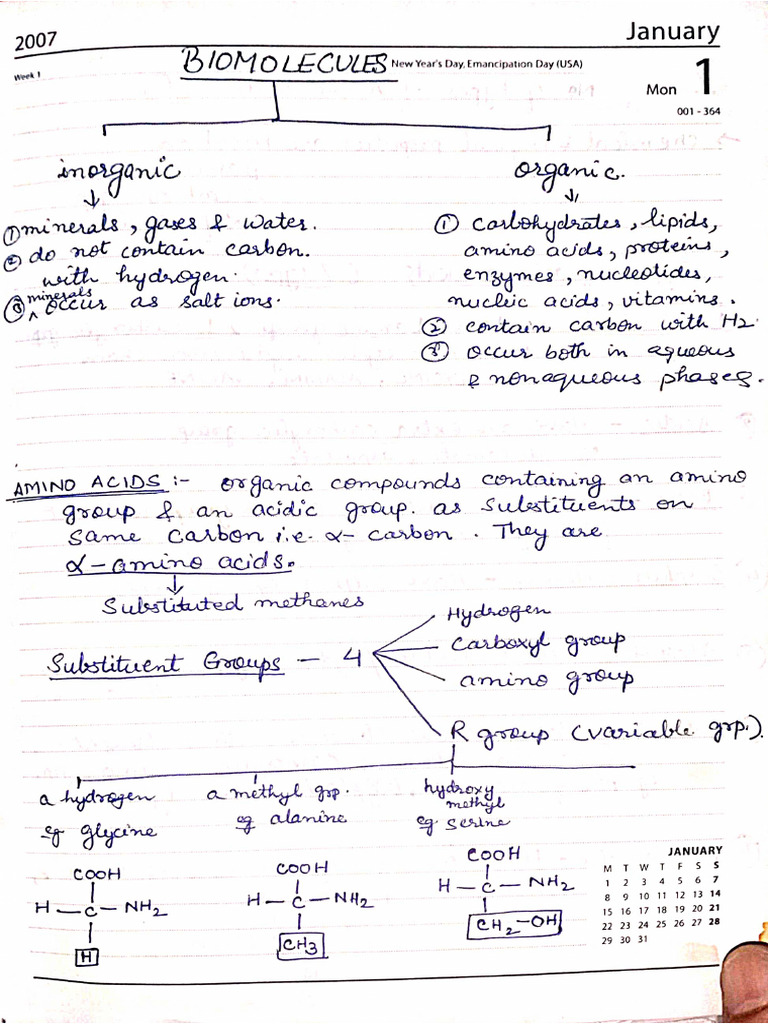 2007
January
Week 1
BIOMOLECULES
New Year's Day, Emancipation Day (USA)
Mon 1
001 - 364
inorganic
↓
① minerals, gases & water.
② do not contain carbon.
with hydrogen.
③ minerals ^ occur as salt ions.
organic.
↓
① carbohydrates, lipids,
amino acids, proteins,
enzymes, nucleotides,
nucleic acids, vitamins.
② contain carbon with H2.
③ occur both in aqueous
& nonaqueous phases.
AMINO ACIDS :- organic compounds containing an amino
group & an acidic group. as substituents on
same carbon i.e. α- carbon. They are
α-amino acids.
↓
Substituted methanes
Substituent Groups - 4
Hydrogen
Carboxyl group
amino group
R group (variable grp.).
a hydrogen
eg glycine
a methyl grp.
eg alanine
hydroxy
methyl
eg. serine
COOH
H — C — NH2
H
COOH
H — C — NH2
CH3
COOH
H — C — NH2
CH2 — OH
JANUARY
M T W T F S S
1 2 3 4 5 6 7
8 9 10 11 12 13 14
15 16 17 18 19 20 21
22 23 24 25 26 27 28
29 30 31